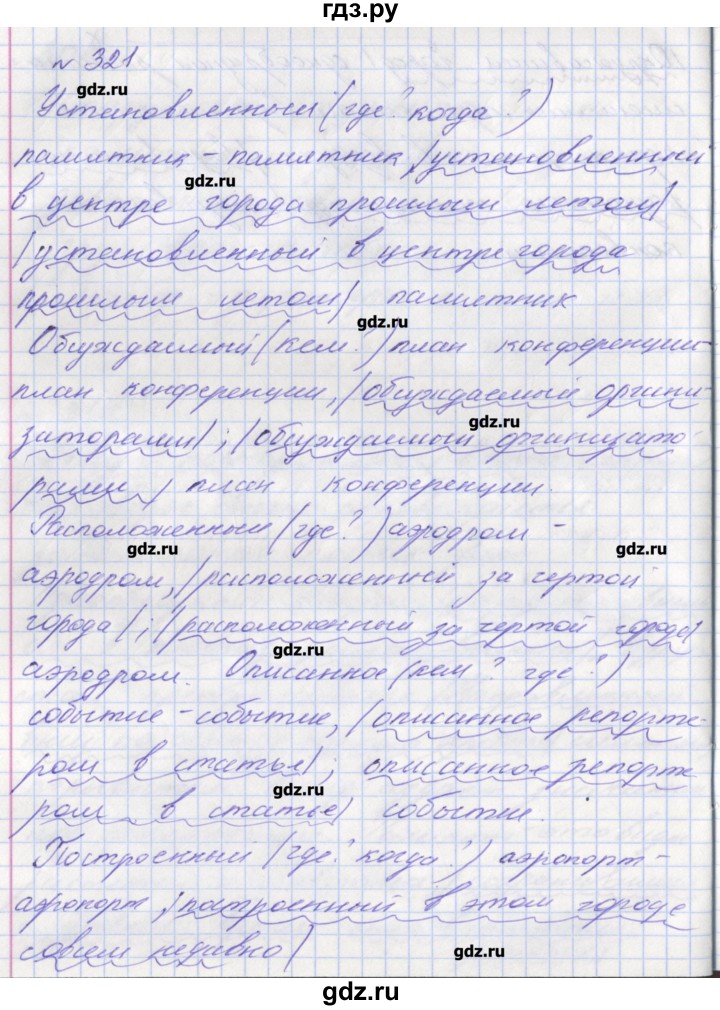 гдз.ру
№ 321
gdz.ru
Установленный (где? когда?)
памятник - памятник, |установленный
gdz.ru
в центре города прошлым летом|
|установленный в центре города
прошлым летом| памятник
gdz.ru
Обсуждаемый (кем?) план конференции-
план конференции, |обсуждаемый органи-
gdz.ru
заторами|; |обсуждаемый организато-
рами| план конференции.
Расположенный (где?) аэродром -
gdz.ru gdz.ru
аэродром, |расположенный за чертой
города|; |расположенный за чертой города|
gdz.ru
аэродром. Описанное (кем? где?)
событие - событие, |описанное репорте-
ром в статье|; описанное репорте
gdz.ru
ром в статье| событие.
Построенный (где? когда?) аэропорт-
аэропорт, |построенный в этом городе
совсем недавно|
gdz.ru
gdz.ru